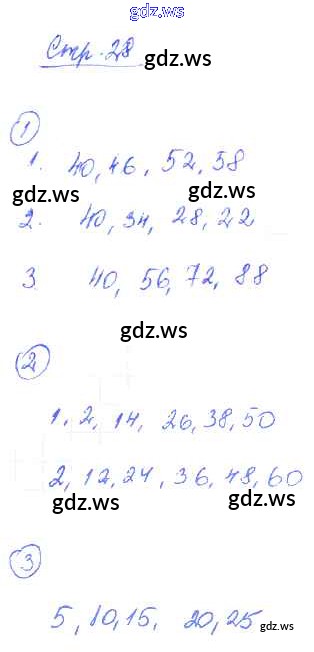 gdz.ws
Стр. 28 gdz.ws
1
1. 40, 46, 52, 58
gdz.ws gdz.ws
2. 40, 34, 28, 22
3 40, 56, 72, 88
gdz.ws
2
1. 2, 14, 26, 38, 50
2, 12, 24, 36, 48, 60
gdz.ws gdz.ws
3
5, 10, 15, 20, 25 gdz.ws